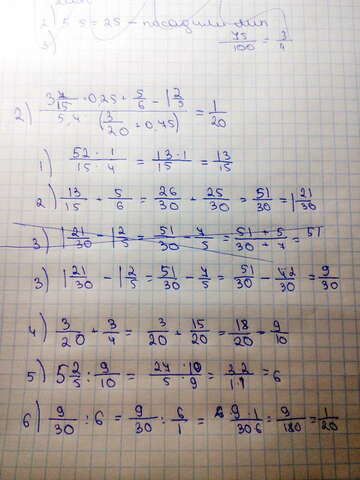 2) 5·5=25 - посадили лип
3) 75/100 = 3/4
2) (3 7/15 · 0,25 + 5/6 - 1 2/5) / (5,4 : (3/20 + 0,75)) = 1/20
1) (52 · 1)/(15 · 4) = (13·1)/15 = 13/15
2) 13/15 + 5/6 = 26/30 + 25/30 = 51/30 = 1 21/30
3) 1 21/30 - 1 2/5 = 51/30 - 7/5 = (51 + 5)/(30 + 7) = 51
3) 1 21/30 - 1 2/5 = 51/30 - 7/5 = 51/30 - 42/30 = 9/30
4) 3/20 + 3/4 = 3/20 + 15/20 = 18/20 = 9/10
5) 5 2/5 : 9/10 = (27 · 10)/(5 · 9) = (3 2)/(1·1) = 6
6) 9/30 : 6 = 9/30 : 6/1 = (9·1)/(30 6) = 9/180 = 1/20